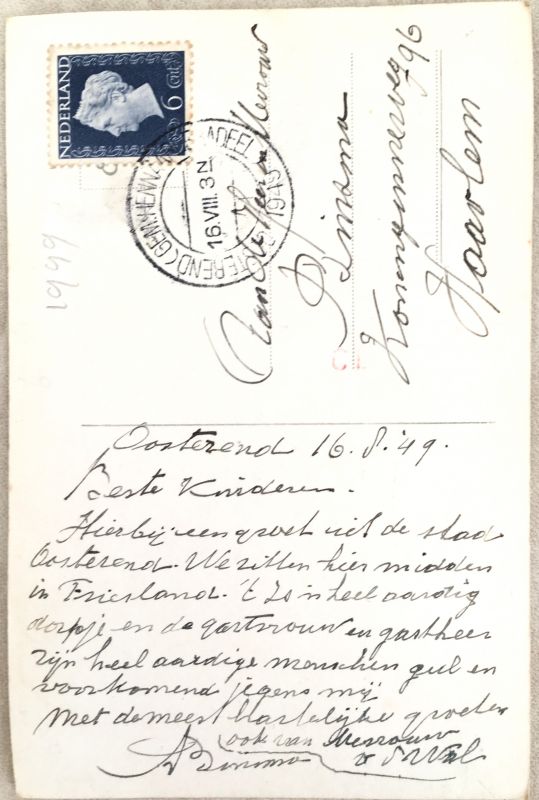 NEDERLAND
6 Cent
OOSTEREND (GEM. HENNAARDERADEEL)
16.VIII.3N
1949
1949
Aan de Heer en Mevrouw
Binsma
Konninginneweg 96
Haarlem
Oosterend 16.8.'49.
Beste Kinderen.
Hierbij een groet uit de stad
Oosterend. We zitten hier midden
in Friesland. 't Is 'n heel aardig
dorpje en de gastvrouw en gastheer
zijn heel aardige menschen gul en
voorkomend jegens mij
Met de meest hartelijke groeten
ook van Mevrouw
Binsma v d Wal